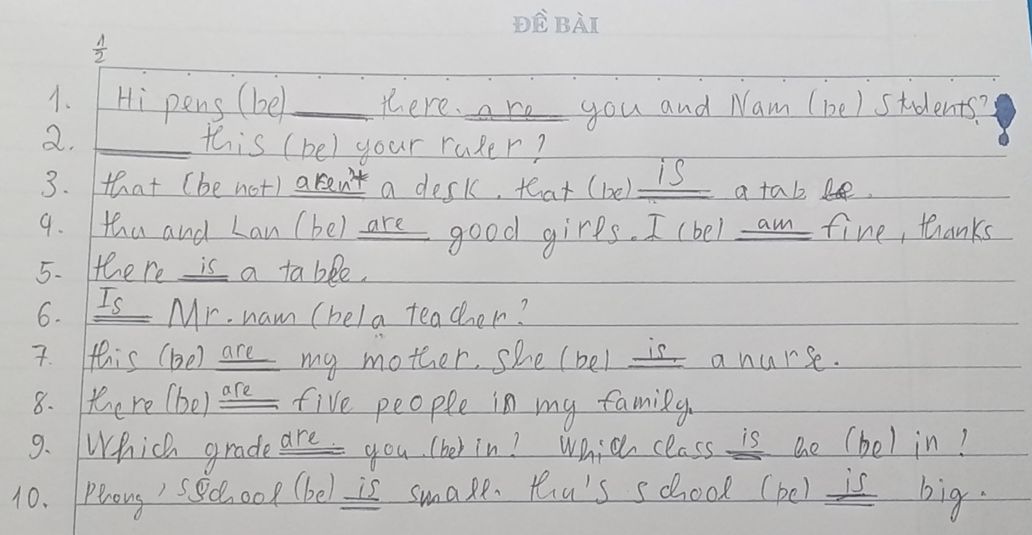 ĐỀ BÀI
1/2
1. Hi pens (be) ___ there. are you and Nam (be) students?
2. ___ this (be) your ruler?
3. that (be not) aren't a desk. that (be) is a table.
4. thu and Lan (be) are good girls. I (be) am fine, thanks
5. there is a table.
6. Is Mr. nam (be) a teacher?
7. this (be) are my mother. She (be) is a nurse.
8. there (be) are five people in my family.
9. Which grade are you (be) in? Which class is he (be) in?
10. Phong's School (be) is small. thu's school (be) is big.